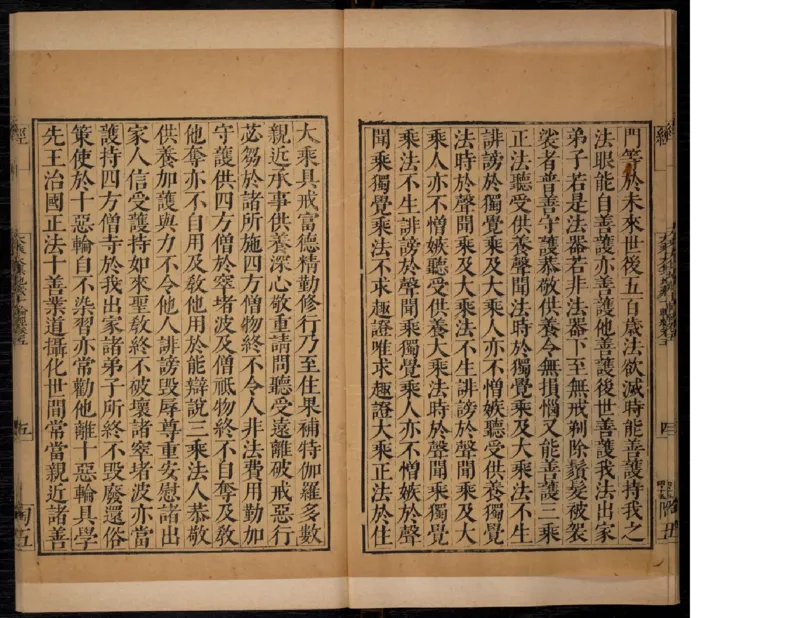 門等於未來世後五百歲法欲滅時能善護持我之
法眼能自善護亦善護他善護後世善護我法出家
弟子若是法器若非法器下至無戒剃除鬚髮被袈
裟者普善守護恭敬供養令無損惱又能善護三乘
正法聽受供養聲聞法時於獨覺乘及大乘法不生
誹謗於獨覺乘及大乘人亦不憎嫉聽受供養獨覺
法時於聲聞乘及大乘法不生誹謗於聲聞乘及大
乘人亦不憎嫉聽受供養大乘法時於聲聞乘獨覺
乘法不生誹謗於聲聞乘獨覺乘人亦不憎嫉於聲
聞乘獨覺乘法不求趣證唯求趣證大乘正法於住
大乘具戒富德精勤修行乃至住果補特伽羅多數
親近承事供養深心敬重請問聽受遠離破戒惡行
苾芻於諸所施四方僧物終不令人非法費用勤加
守護供四方僧於窣堵波及僧祇物終不自奪及敎
他奪亦不自用及敎他用於能辯說三乘法人恭敬
供養加護與力不令他人誹謗毀辱尊重安慰諸出
家人信受護持如來聖敎終不破壞諸窣堵波亦當
護持四方僧寺於我出家諸弟子所終不毀廢還俗
策使於十惡輪自不染習亦常勸他離十惡輪具學
先王治國正法十善業道攝化世間常當親近諸善
經
五
四